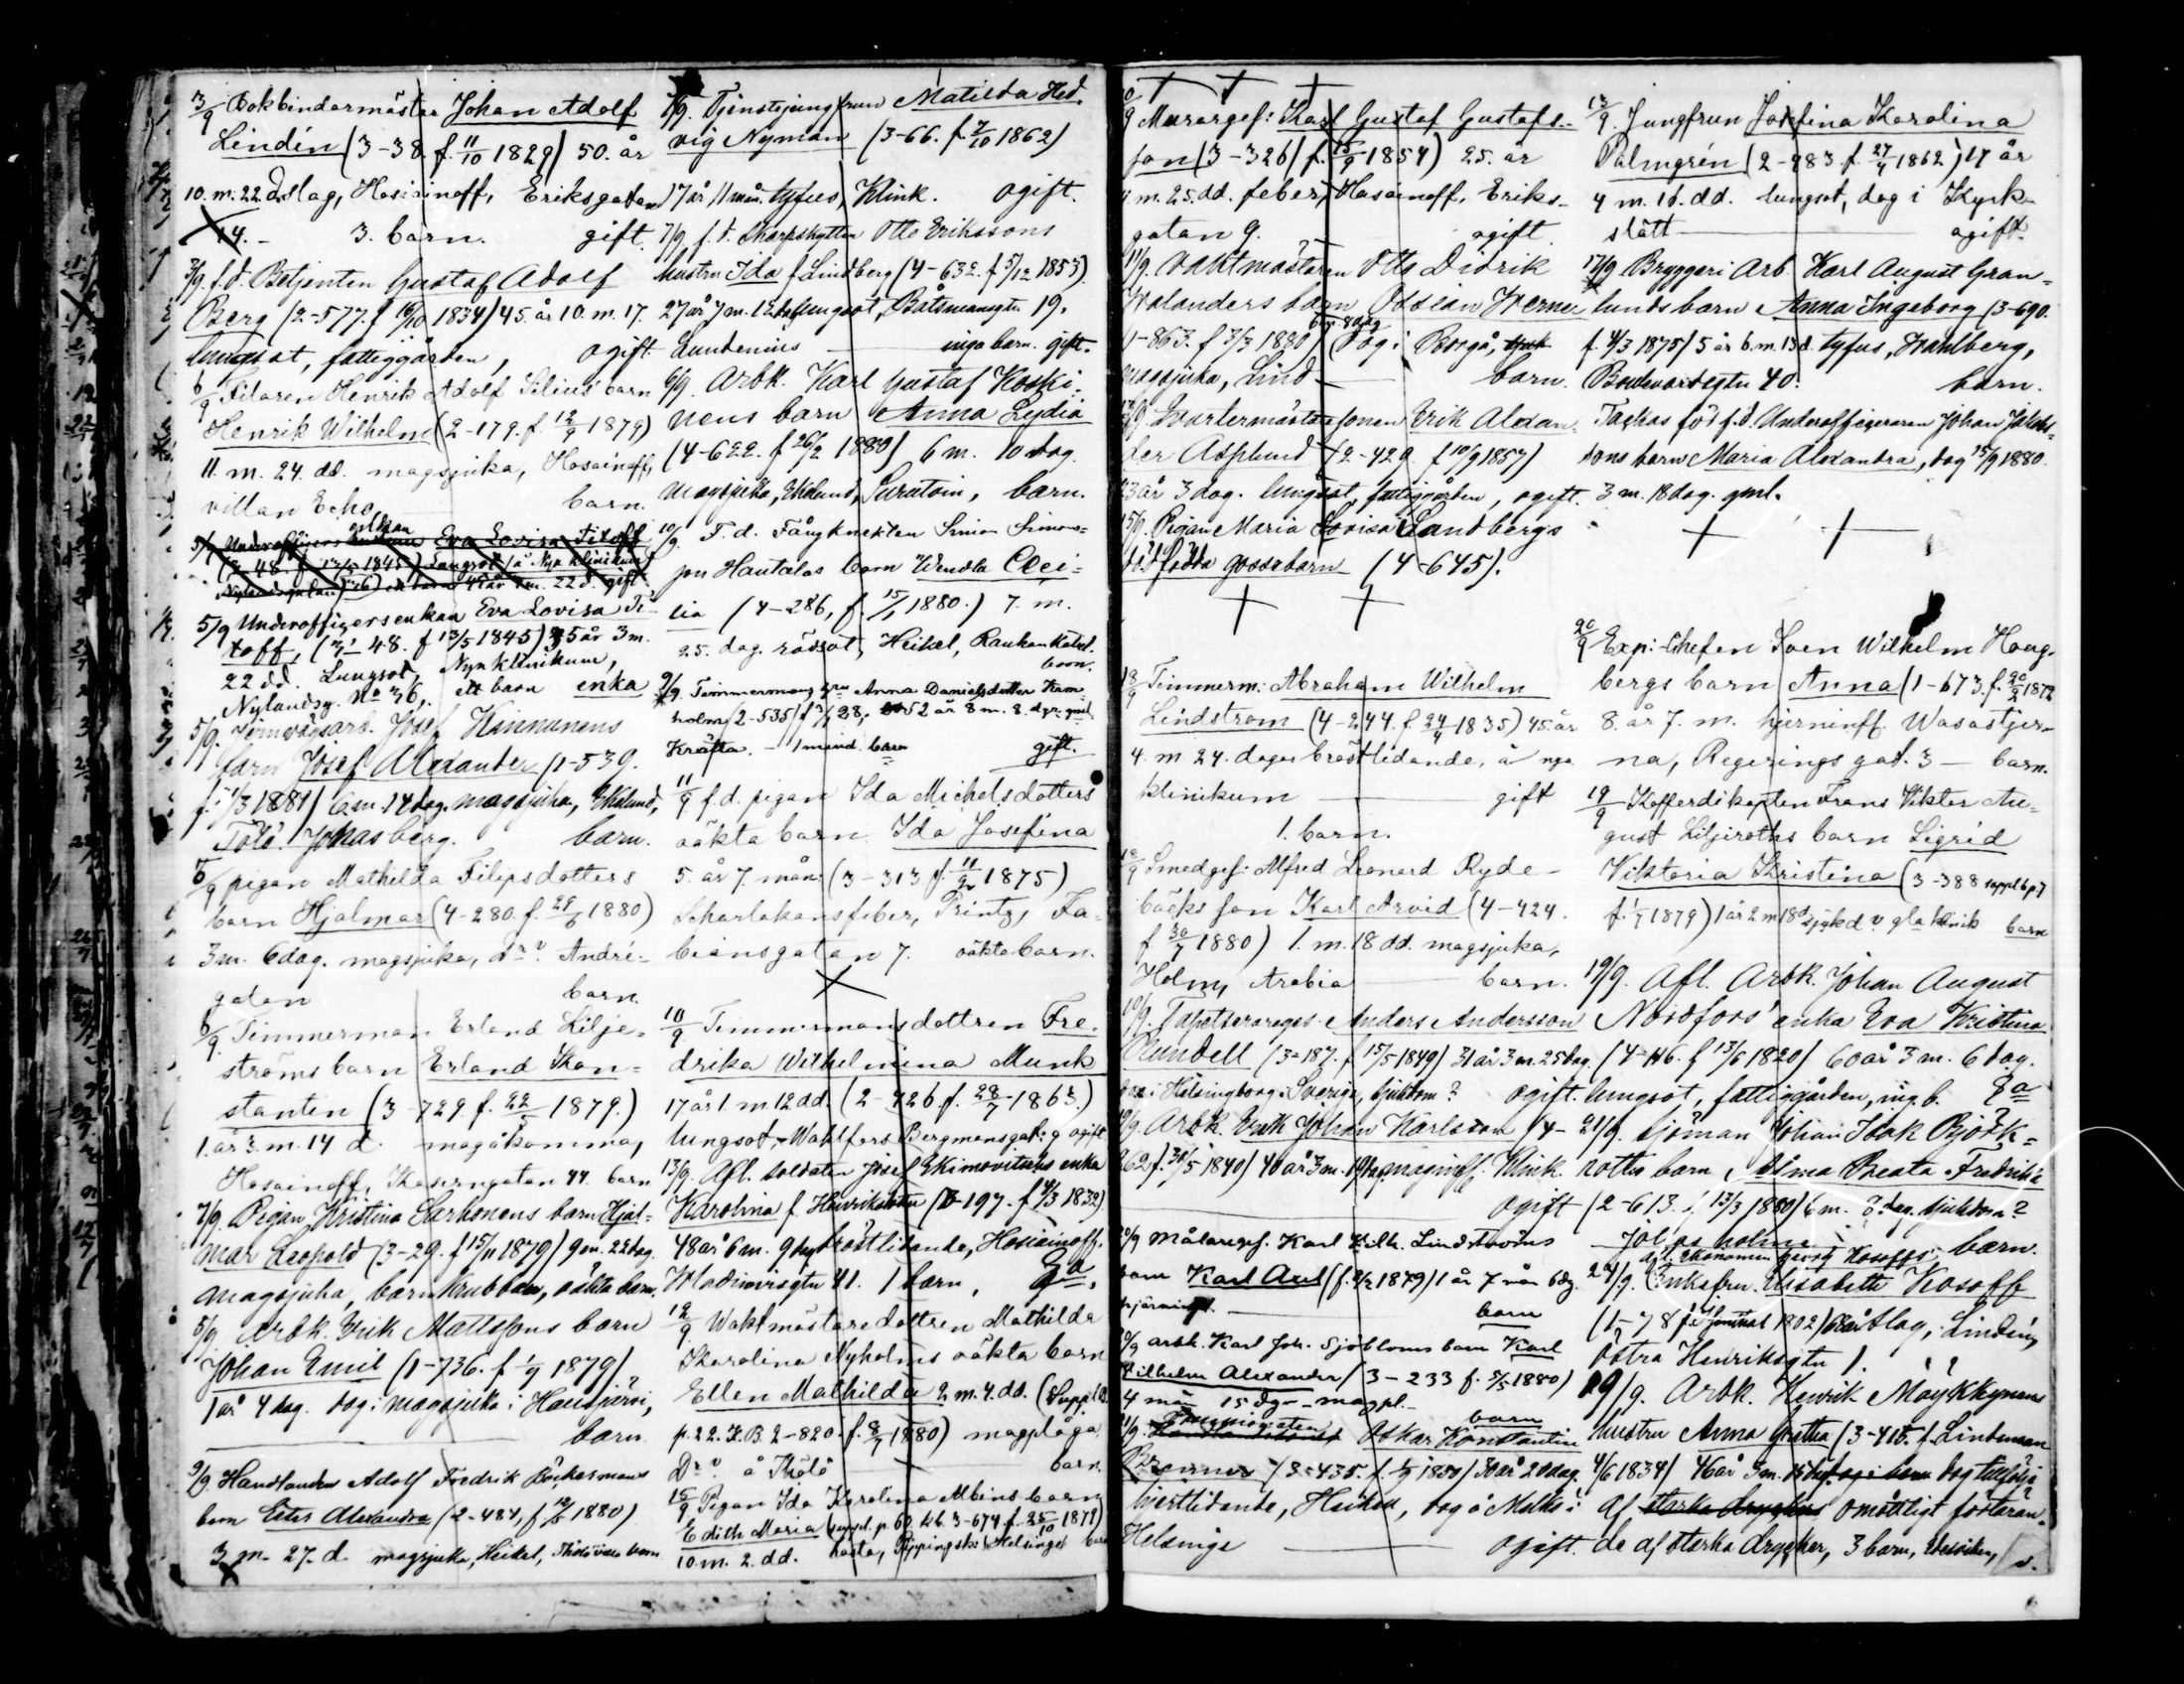 3/9 Bokbindarmäster Johan Adolf
Lindén (3-38. f. 11/10 1829) 50. år
10. m. 22. d. slag, Hosiainoff, Eriksgatan
14. - 3. barn. gift.
3/9. f.d. Betjenten Gustaf Adolf
Berg (2-577. f 16/10 1834) 45. år 10. m. 17.
lungsot, fattiggården, ogift.
6/9 Filaren Henrik Adolf Silius barn
Henrik Wilhelm (2-179. f. 12/9 1879)
11. m. 24. dd. magsjuka, Hosainoff,
villan Echo barn.
5/9 Underofficers enkan Eva Lovisa Titoff
48. f 13/5 1845) Lungsot (å Nya klinikum)
22 d. gift.
5/9 Underofficersenkan Eva Lovisa Ti-
toff, (48. f 13/5 1845) 35 år 3 m.
22 dd. Lungsot, Nya klinikum,
Nylandsg. No 36, ett barn enka
5/9. Jernvägsarb. Josef Kinnunens
barn Josef Alexander (1-539.
1881) 6 m. 14 dag. magsjuka, Eklund,
Tölö. Johasberg. barn.
6/9 pigan Mathilda Filipsdotters
barn Hjalmar (4-280. f. 1880)
3 m. 6 dag. magsjuka, André-
gatan barn.
6/9. Timmerman Erland Lilje-
ströms barn Erland Kon-
stantin (3-729 f. 22/5 1879.)
1. år 3. m. 14 d. magåkomma,
Hosainoff, Kaserngatan 44. barn
7/9. Pigan Kristina Sarhonens barn Hjal-
mar Leopold (3-29. f 15/11 1879) 9 m. 22 dag.
magsjuka, barnkrubban, oäkta barn.
5/9 Arbk. Erik Mattssons barn
Johan Emil (1-736. f 1/9 1879)
1 år 4 dag. dog i magsjuka i Hausjärvi,
barn.
9/9. Handlanden Adolf Fredrik
barn Ester Alexandra (2-484, f 1880)
3 m. 27. d. magsjuka, Heikel, barn
7/9. Tjenstejungfrun Matilda Hed-
vig Nyman (3-66. f. 7/10 1862)
17 år 11 mån. tyfus, Klink. ogift.
7/9. f.d. Skarpskytten Otto Erikssons
hustru Ida f. Lindberg (4-632. f 5/12 1853)
27 år 7 m. 12 dag lungsot, Båtsmansgtn 19.
Lundenius inga barn. gift.
6/9. Arbk. Karl Gustaf Koski-
nens barn Anna Lydia
(4-622. f 26/2 1880) 6 m. 10 dag
magsjuka, Eklund, Suratoin, barn.
10/9 F.d. Fångknekten Simon Simons-
son Hautalas barn Wendla Ceci-
lia (4-286, f. 15/1 1880.) 7. m.
25. dag. rödsot, Heikel,
barn.
9/9. Timmermans fru Anna Danielsdotter
holm (2-535) 52 år 8 m. 8.
Kräfta. - 1 mind. barn gift.
11/9 f.d. pigan Ida Michelsdotters
oäkta barn Ida Josefina
5. år 7. mån: (3-313 f. 11/2 1875)
Scharlakansfeber, Printz, Fa-
biansgatan 7. oäkta barn.
10/9 Timmermansdottren Fre-
drika Wilhelmina Munk
17 år 1. m. 12 dd. (2-726 f. 28/7 1863.)
lungsot, Wahlfors Bergmansgat: 9 ogift
13/9. Afl. Soldaten Josef Ekimovitschs enka
Karolina f. Henriksdotter (197. f 4/3 1832)
48 år 6 m. 9 dag bröstlidande, Hosiainoff.
Wladimirsgtn 41. 1 barn,
12/9 Waktmästaredottren Mathilda
Karolina Nyholms oäkta barn
Ellen Mathilda 2. m. 4. dd. (Suppl:
p. 22. K.B. 2-820. f. 8/7 1880) magplåga
Dr: å Thölö barn.
15/9 Pigan Ida Karolina Albins barn
Edith Maria (suppl. p. 3-674 f. 25/10 1879)
10. m. 2. dd. hosta, Helsinge barn
9 Murarges: Karl Gustaf Gustafs-
son (3-326) f. 15/9 1854) 25. år
11 m. 25. dd. feber, Hosainoff, Eriks-
gatan 9. ogift.
11/9. Vaktmästaren Otto Didrik
Walanders barn Ossian Werner
(1-863. f 3/3 1880) 6 m. 8 dag (Dog i Borgå,
magsjuka, Lind barn.
13/9. Kvartermästaresonen Erik Alexan-
der Asplund (2-429. f 10/9 1857)
23 år 3 dag. lungsot, fattiggården, ogift.
15/9. Pigan Maria Lovisa Sandbergs
dödfödda gossebarn (4-645).
18/9 Timmerm: Abraham Wilhelm
Lindström (4-244. f 24/4 1835) 45 år
4. m 24. dagar bröstlidande, å nya
klinikum gift
1. barn.
18/9 Smedges: Alfred Leonard Ryde-
bäcks son Karl Arvid (4-424.
f 30/7 1880) 1. m. 18 dd. magsjuka,
Holm, Arabia barn.
10/9. Tapetserareges. Anders Andersson
Rundell (3-187. f 15/5 1849) 31 år 3 m. 25 dag.
dog i Helsingborg i Sverige, sjukdom? ogift.
19/9. Arbk. Erik Johan Karlsson (4-
262 f. 30/5 1840) 40 år 3 m. 19 dag. maginff. Klink.
ogift
20/9 Målareges. Karl Wilh. Lindströms
barn Karl Axel (f. 2/2 1879) 1 år 7 mån 6 dg.
hjärninfl. barn
20/9 arbk. Karl Joh. Sjöbloms barn Karl
Wilhelm Alexander (3-233 f. 5/5 1880)
4 mån 15 dgr - magpl. - barn
21/9. Oskar Konstantin
(3-435. f. 1/9 1850) 30 år 20 dag.
hjertlidande, Heikel, dog å Malms i
Helsinge ogift.
13/9. Jungfrun Josefina Karolina
Palmgrén (2-483 f. 27/4 1862) 17 år
4 m. 16. dd. lungsot, dog i Kyrk-
slätt ogift.
17/9 Bryggeri Arb. Karl August Gran-
lunds barn Anna Ingeborg (3-690.
f. 4/3 1875) 5 år 6. m. 13 d. tyfus, Wahlberg,
Boulevardsgtn 40. barn.
Tackas för f.d. Underofficeraren Johan Jakobs-
sons barn Maria Alexandra, dog 15/9 1880.
3 m. 18 dag. gml.
20/9 Exp:-Chefen Sven Wilhelm Hong-
bergs barn Anna (1-673. f. 20/2 1872
8. år 7. m. hjerninff. Wasastjer-
na, Regeringsgat. 3 - barn.
19/9 Kofferdikapten Frans Viktor Au-
gust Liljeroths barn Sigrid
Viktoria Kristina (3-388 suppl b p. 7
f. 1/7 1879) 1 år 2 m 18 d. sjukd v gla klinik barn
19/9. Afl. Arbk. Johan August
Nordfors' enka Eva Kristina
(4-116. f 13/6 1820) 60 år 3 m. 6 dag.
lungsot, fattiggården, ing. b.
21/9. Sjöman Johan Isak Björk-
rotts barn, Alma Beata Fredrika
(2-613. f 13/3 1880) 6 m. 8 dag. sjukdom?
barn.
24/9. Enkefru Elisabeth Kosoff
(1-78 1802) slag, Lindén,
Östra Henriksgtn 1.
19/9. Arbk. Henrik Maykkynens
hustru Anna Gretha (3-415. f. Lindeman
4/6 1834) 46 år 3 m. 15 dag. dog till följd
af omåttligt förtäran-
de af starka drycker, 3 barn,